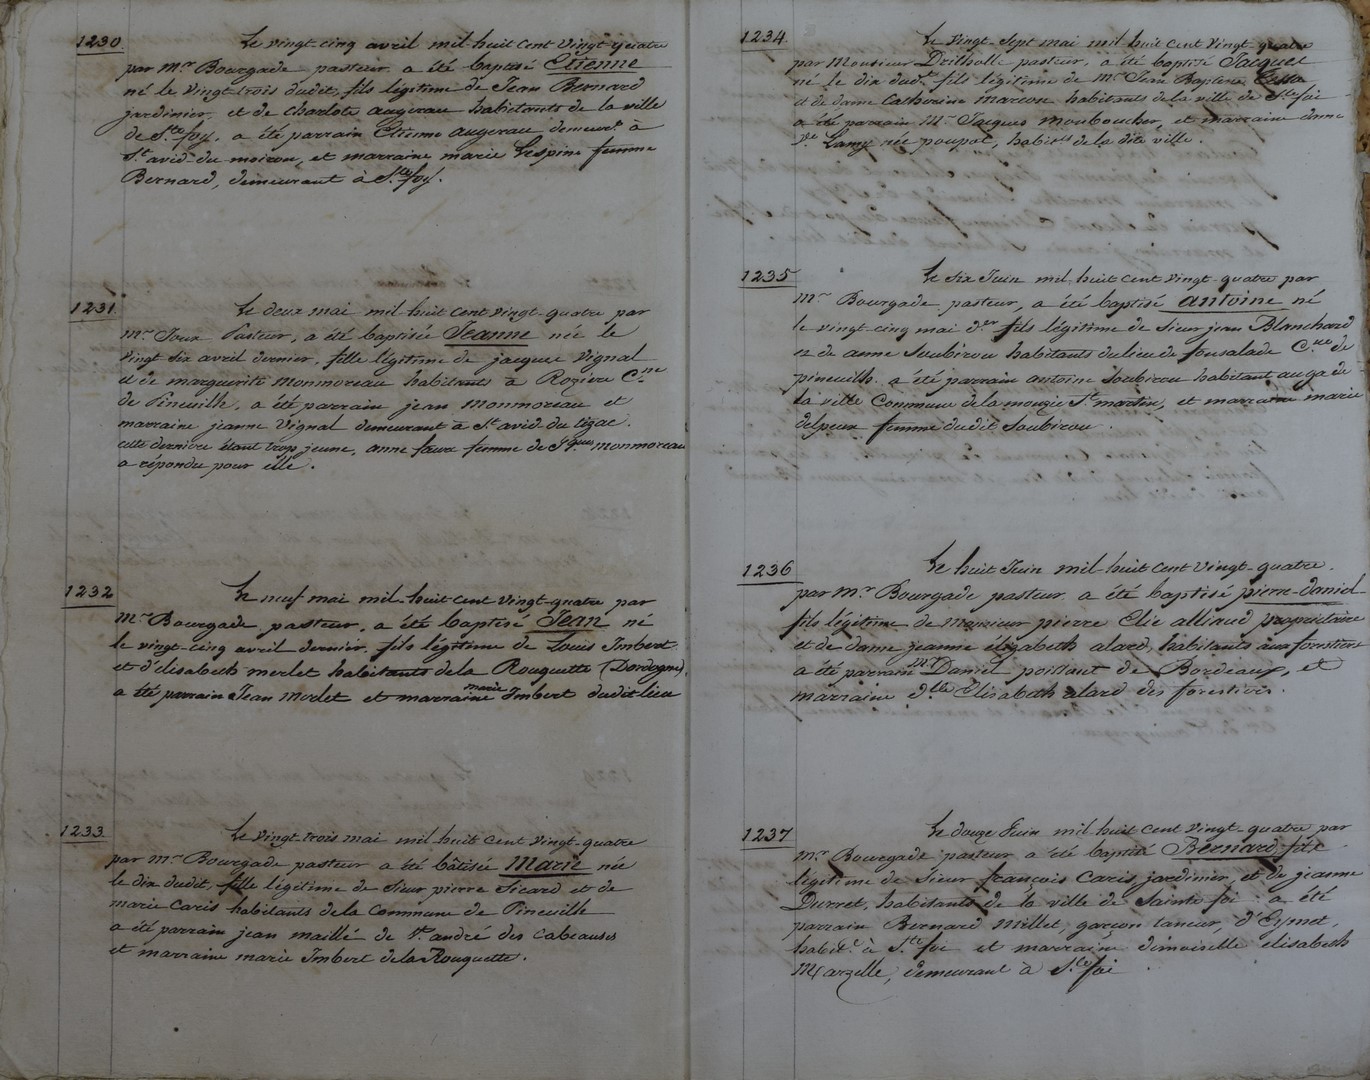 1230
Le vingt-cinq avril mil-huit cent vingt-quatre
par Mr. Bourgade pasteur a été baptisé Etienne
né le vingt-trois dudit, fils légitime de Jean Bernard
jardinier, et de charlote augerau habitants de la ville
de Ste. foy. a été parrain Etienne augerau demeurt. à
St. avid-du moiron, et marraine marie Lespine femme
Bernard, demeurant à Ste. foy.
1231
Le deux mai mil-huit cent vingt-quatre par
Mr. Pasteur, a été baptisée Jeanne née le
vingt six avril dernier, fille légitime de jacques vignal
et de marguerite monmoreau habitants à Rozière Cne.
de Pineuille, a été parrain jean monmoreau et
marraine jeanne vignal demeurant à St. avid-du tizac.
cette dernière étant trop jeune, anne faure femme de Jques. monmoreau
a répondu pour elle.
1232
Le neuf mai mil-huit-cent vingt-quatre par
Mr. Bourgade pasteur, a été baptisé Jean né
le vingt-cinq avril dernier, fils légitime de Louis Imbert
et d'élisabeth merlet habitants de la Rouquette (Dordogne)
a été parrain Jean merlet et marraine marie Imbert dudit lieu
1233
Le vingt-trois mai mil-huit cent vingt-quatre
par Mr. Bourgade pasteur a été bâtisée Marie née
le dix dudit, fille légitime de Sieur pierre Sicard et de
marie Caris habitants de la Commune de Pineuille
a été parrain jean maillé de St. andré des Cabeauses
et marraine marie Imbert de la Rouquette.
1234
Le vingt-sept mai mil huit cent vingt-quatre
par Monsieur Drilholle pasteur, a été baptisé Jacques
né le dix dudt. fils légitime de Mr. Jean Baptiste
et de dame Catherine marcou habitants de la ville de Ste. foi
a été parrain Mr. Jacques Mouboucher, et marraine anne
Ve. Lamy née poupot, habitts. de la dite ville.
1235
Le Six Juin mil huit cent vingt-quatre par
Mr. Bourgade pasteur, a été baptisé antoine né
le vingt cinq mai der. fils légitime de Sieur jean Blanchard
et de anne Soubirou habitants du lieu de fonsalade Cne. de
pineuilh. a été parrain antoine Soubirou habitant au ga de
la ville Commune de la mouzie St. martin, et marraine marie
delpeux femme dudit Soubirou.
1236
Le huit Juin mil-huit cent vingt-quatre.
par Mr. Bourgade pasteur a été baptisé pierre-daniel
fils légitime de Monsieur pierre Elie alliaud propriétaire
et de dame jeanne élizabeth alard, habitants aux forestiers
a été parrain Mr. Daniel poitant de Bordeaux, et
marraine dlle. Elisabeth alard des forestiers.
1237
Le douze Juin mil-huit cent vingt-quatre par
Mr. Bourgade pasteur a été baptisé Bernard fils
légitime de Sieur françois Caris jardinier, et de jeanne
Durret, habitants de la ville de Sainte foi. a été
parrain Bernard Millet, garçon taneur, d'Eymet,
habitt. à Ste. foi et marraine demoiselle élisabeth
Marzelle, demeurant à Ste. foi